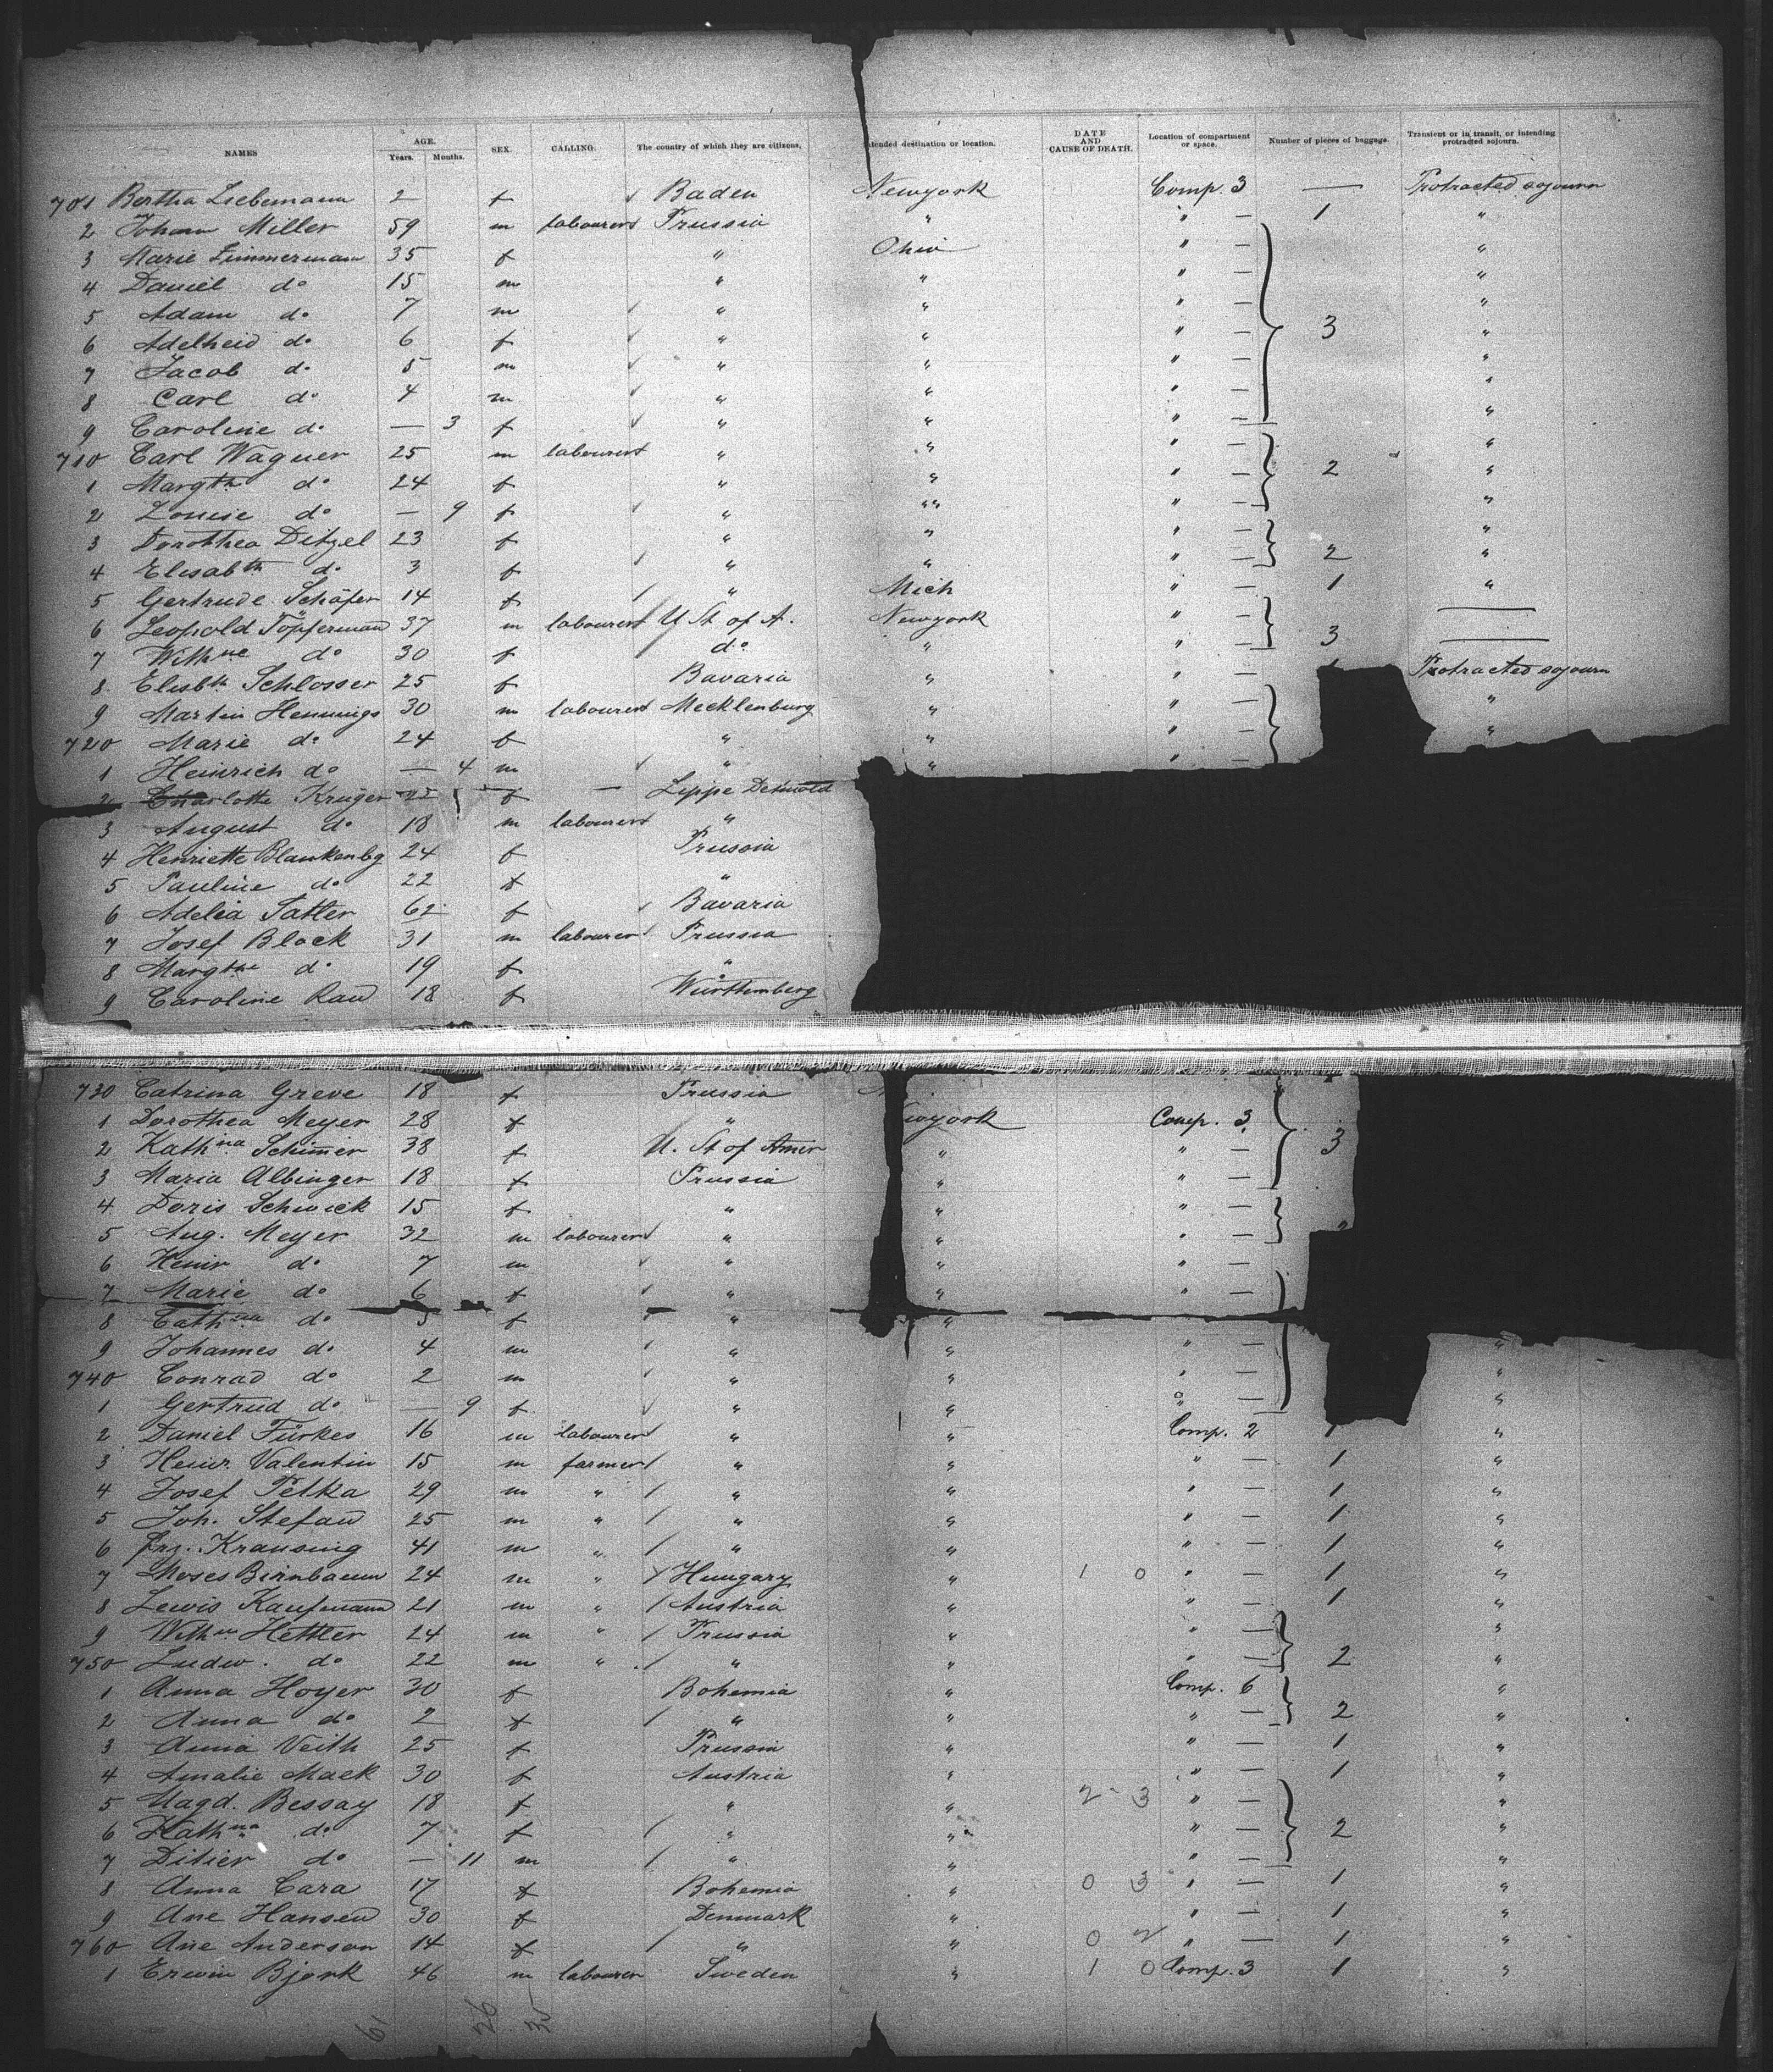 NAMES AGE. Years. Months. SEX. CALLING. The country of which they are citizens, tended destination or location. DATE AND CAUSE OF DEATH. Location of compartment or space. Number of pieces of baggage. Transient or in transit, or intending protracted sojourn.
701 Bertha Liebemann 2 f Baden Newyork Comp. 3 — Protracted sojourn
2 Johann Miller 59 m labourer Prussia " " — 1 "
3 Marie Zimmermann 35 f " Ohio " — "
4 Daniel do 15 m " " " — "
5 Adam do 7 m " " " — "
6 Adelheid do 6 f " " " — 3 "
7 Jacob do 5 m " " " — "
8 Carl do 4 m " " " — "
9 Caroline do — 3 f " " " — "
710 Carl Wagner 25 m labourer " " " — "
1 Margth do 24 f " " " — 2 "
2 Louise do — 9 f " " " — "
3 Dorothea Ditzel 23 f " " " — "
4 Elisabth do 3 f " " " — 2 "
5 Gertrude Schäfer 14 f " Mich " — 1 "
6 Leopold Töpfermann 37 m labourer U St of A. Newyork " — —
7 Wilhne do 30 f do " " — 3 —
8 Elisbth Schlosser 25 f Bavaria " " — Protracted sojourn
9 Martin Hennings 30 m labourer Mecklenburg " " — "
720 Marie do 24 f " " " — "
1 Heinrich do — 4 m " " " —
2 Charlotte Krüger 25 f — Lippe Detmold
3 August do 18 m labourer "
4 Henriette Blankenbg 24 f Prussia
5 Pauline do 22 f "
6 Adelia Satler 62 f Bavaria
7 Josef Block 31 m labourer Prussia
8 Margthe do 19 f "
9 Caroline Rau 18 f Württemberg
730 Catrina Greve 18 f Prussia
1 Dorothea Meyer 28 f " wyork Comp. 3
2 Kathna Schimmer 38 f U. St of Amer " " — 3
3 Maria Albinger 18 f Prussia " " —
4 Doris Schwick 15 f " " " —
5 Aug. Meyer 32 m labourer " " " — "
6 Heinr do 7 m " " " —
7 Marie do 6 f " " " —
8 Cathna do 5 f " "
9 Johannes do 4 m " " " — "
740 Conrad do 2 m " " " — "
1 Gertrud do — 9 f " " " — "
2 Daniel Fürkes 16 m labourer " " Comp. 2 1 "
3 Heinr. Valentin 15 m farmer " " " — 1 "
4 Josef Petka 29 m " " " " — 1 "
5 Joh. Stefan 25 m " " " " — 1 "
6 Frz. Krausing 41 m " " " " — 1 "
7 Moses Birnbaum 24 m " Hungary " 1 0 " — 1 "
8 Lewis Kaufmann 21 m " Austria " " — 1 "
9 Wilhm Hettler 24 m " Prussia " " — "
750 Ludw. do 22 m " " " " — 2 "
1 Anna Hoyer 30 f Bohemia " Comp. 6 "
2 Anna do 2 f " " " — 2 "
3 Anna Veith 25 f Prussia " " — 1 "
4 Amalie Mack 30 f Austria " " — 1 "
5 Magd. Bessay 18 f " " 2 3 " — "
6 Kathna do 7 f " " " — 2 "
7 Ditier do — 11 m " " " — "
8 Anna Cara 17 f Bohemia " 0 3 " — 1 "
9 Ane Hansen 30 f Denmark " " — 1 "
760 Ane Anderson 14 f " " 0 2 " — 1 "
1 Erwin Bjork 46 m labourer Sweden " 1 0 Comp. 3 1 "
61 26 35